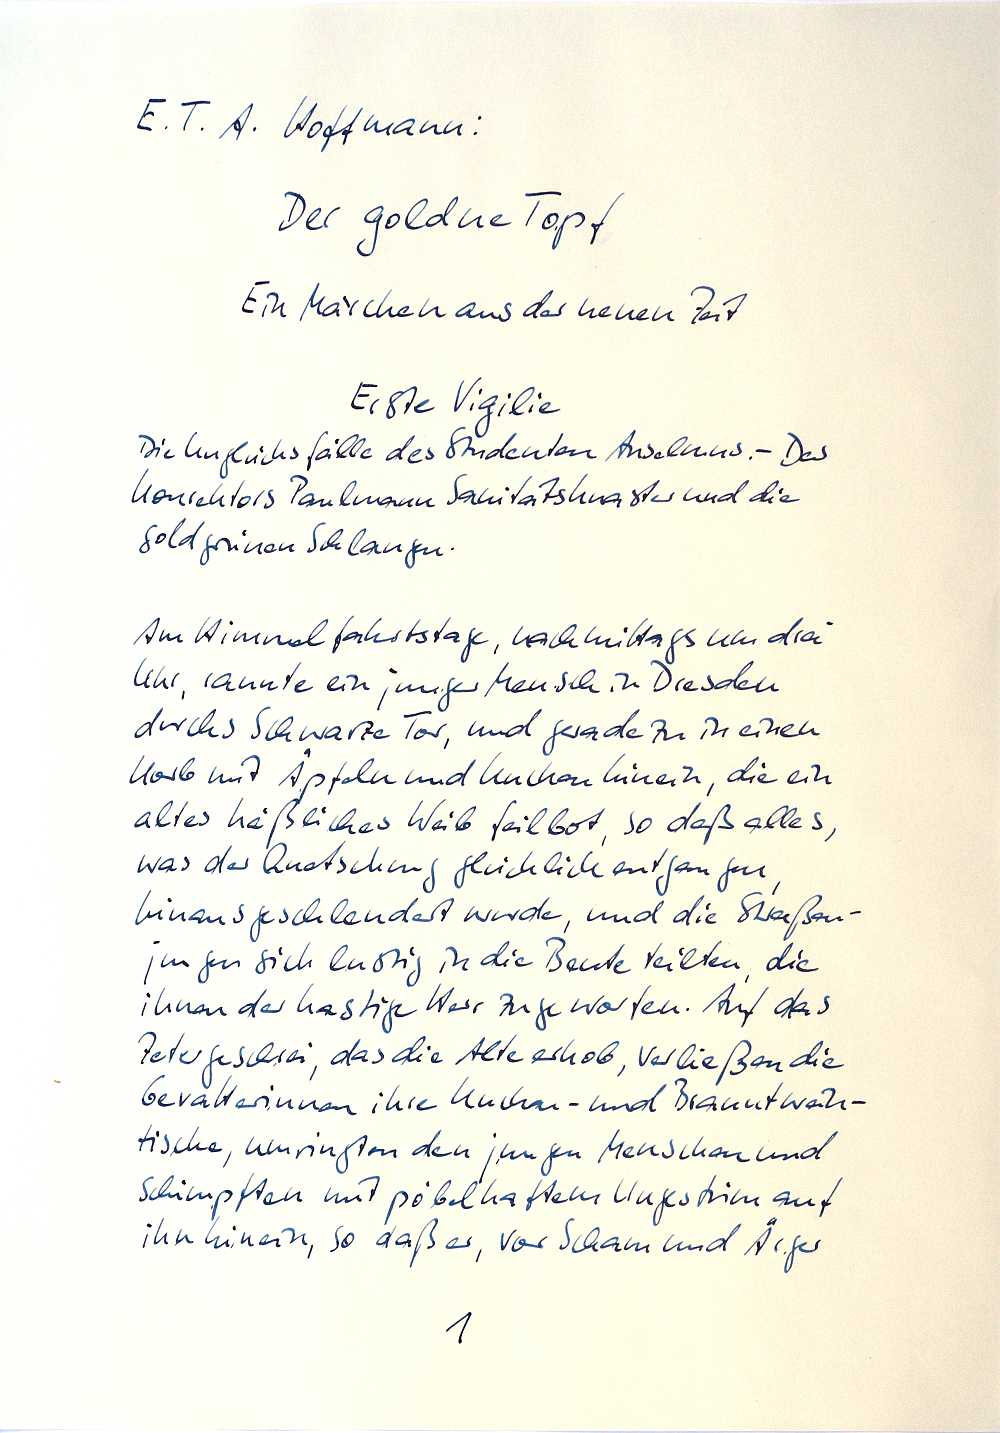 E. T. A. Hoffmann:
Der goldne Topf
Ein Märchen aus der neuen Zeit
Erste Vigilie
Die Unglücksfälle des Studenten Anselmus. – Des
Konrektors Paulmann Sanitätsknaster und die
goldgrünen Schlangen.
Am Himmelfahrtstage, nachmittags um drei
Uhr, rannte ein junger Mensch in Dresden
durchs Schwarze Tor, und geradezu in einen
Korb mit Äpfeln und Kuchen hinein, die ein
altes häßliches Weib feilbot, so daß alles,
was der Quetschung glücklich entgangen,
hinausgeschleudert wurde, und die Straßen-
jungen sich lustig in die Beute teilten, die
ihnen der hastige Herr zugeworfen. Auf das
Zetergeschrei, das die Alte erhob, verließen die
Gevatterinnen ihre Kuchen- und Branntwein-
tische, umringten den jungen Menschen und
schimpften mit pöbelhaftem Ungestüm auf
ihn hinein, so daß er, vor Scham und Ärger
1